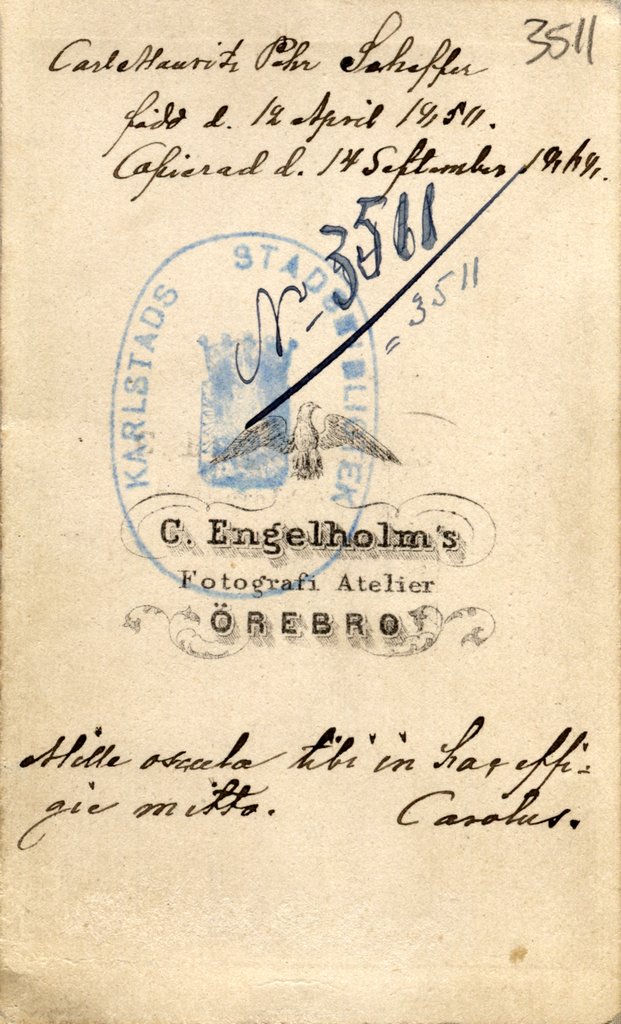 3511
Carl Mauritz Pehr Scheffer
född d. 12 April 1851.
Copierad d. 14 September
No 3511
= 3511
KARLSTADS STADSBIBLIOTEK
C. Engelholm's
Fotografi Atelier
ÖREBRO
Mille oscula tibi in hac effi=
gie mitto. Carolus.